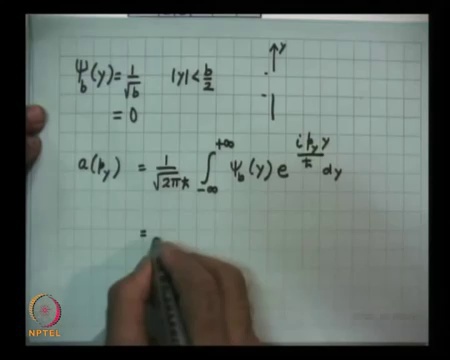 ψ_b(y) = 1/√b |y| < b/2
= 0
y
a(p_y) = 1/√(2πħ) ∫_{-∞}^{+∞} ψ_b(y) e^{i p_y y/ħ} dy
=
NPTEL